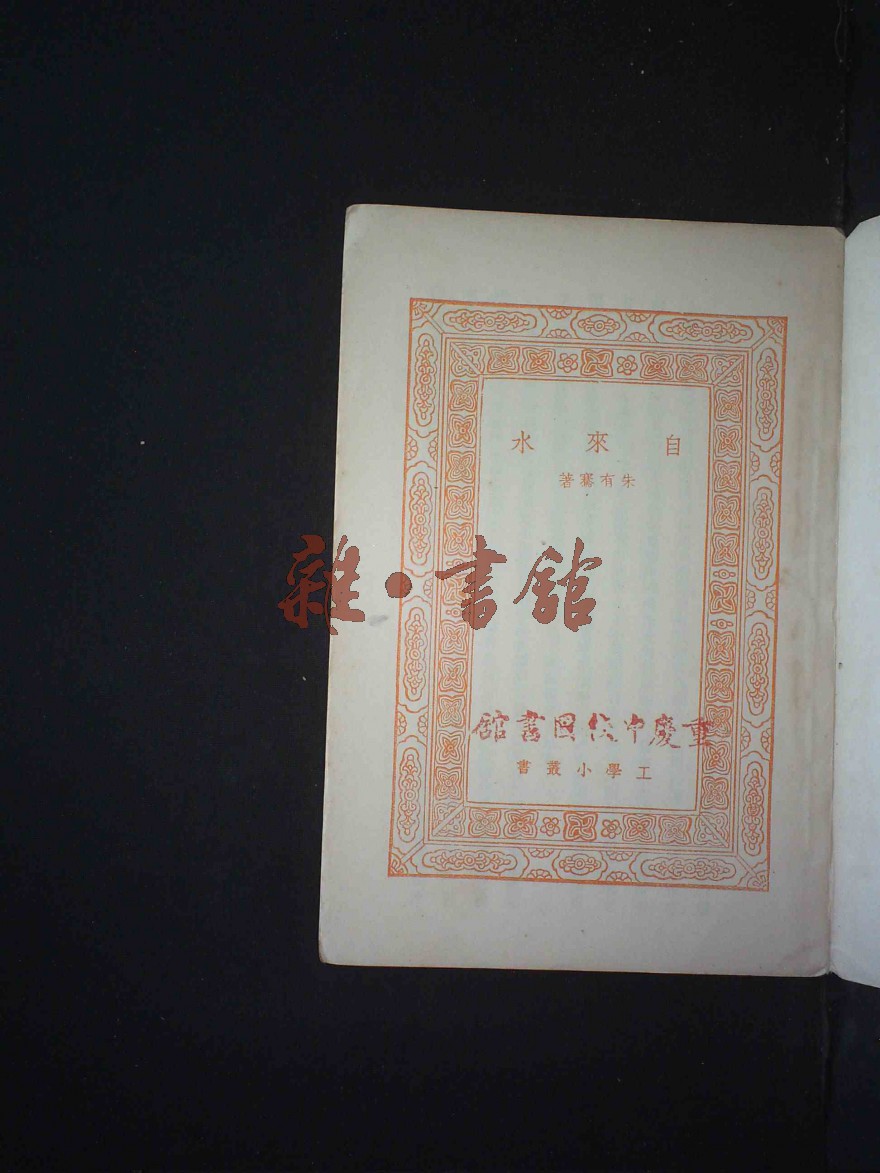 自來水
朱有騫著
雜·書館
重慶中山圖書館
工學小叢書